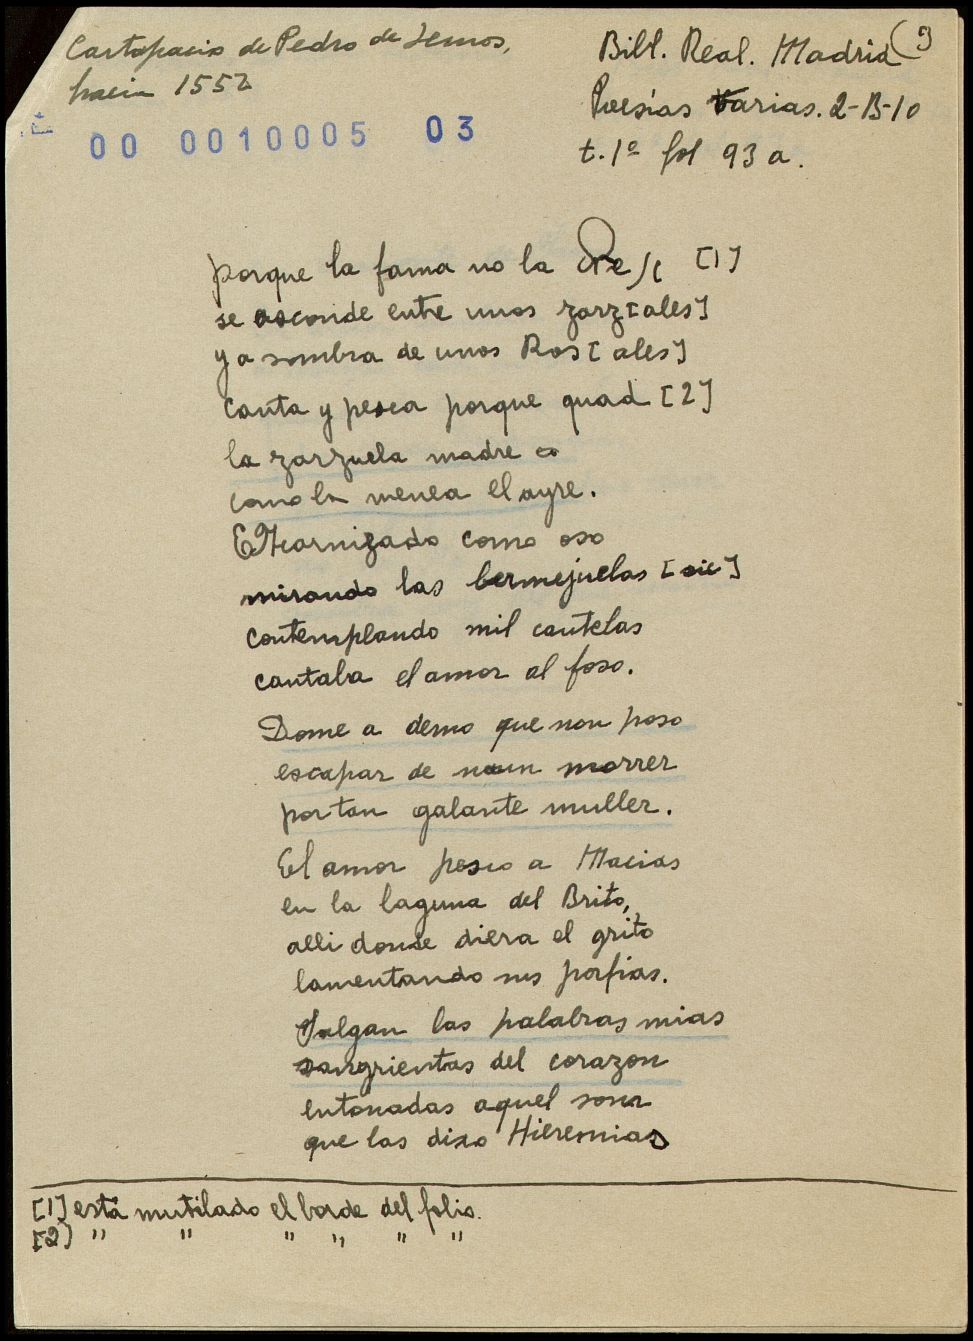 Cartapacio de Pedro de Lemos,
hacia 1552
Bibl. Real. Madrid
9
Poesías Varias. 2-B-10
t. 1º fol 93 a.
00 0010005 03
porque la fama no la [1]
se asconde entre unos zarz[ales]
y a sombra de unos Ros[ales]
canta y pesca porque quad [2]
la zarzuela madre
como la menea el ayre.
Encarnizado como oso
mirando las bermejuelas [sic]
contemplando mil cautelas
cantaba el amor al foso.
Dome a demo que non poso
escapar de morrer
por tan galante muller.
El amor pesco a Macias
en la laguna del Brito,
alli donde diera el grito
lamentando sus porfias.
Salgan las palabras mias
sangrientas del corazon
entonadas aquel son
que las dixo Hieremias
[1] está mutilado el borde del folio.
[2] " " " " " "